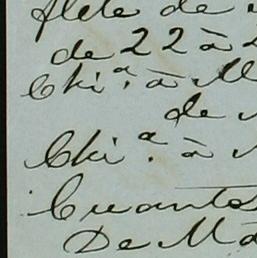 flete de
de 22 à
Chi.ª à M
de
Chi.ª à
Cuanto
De Ma